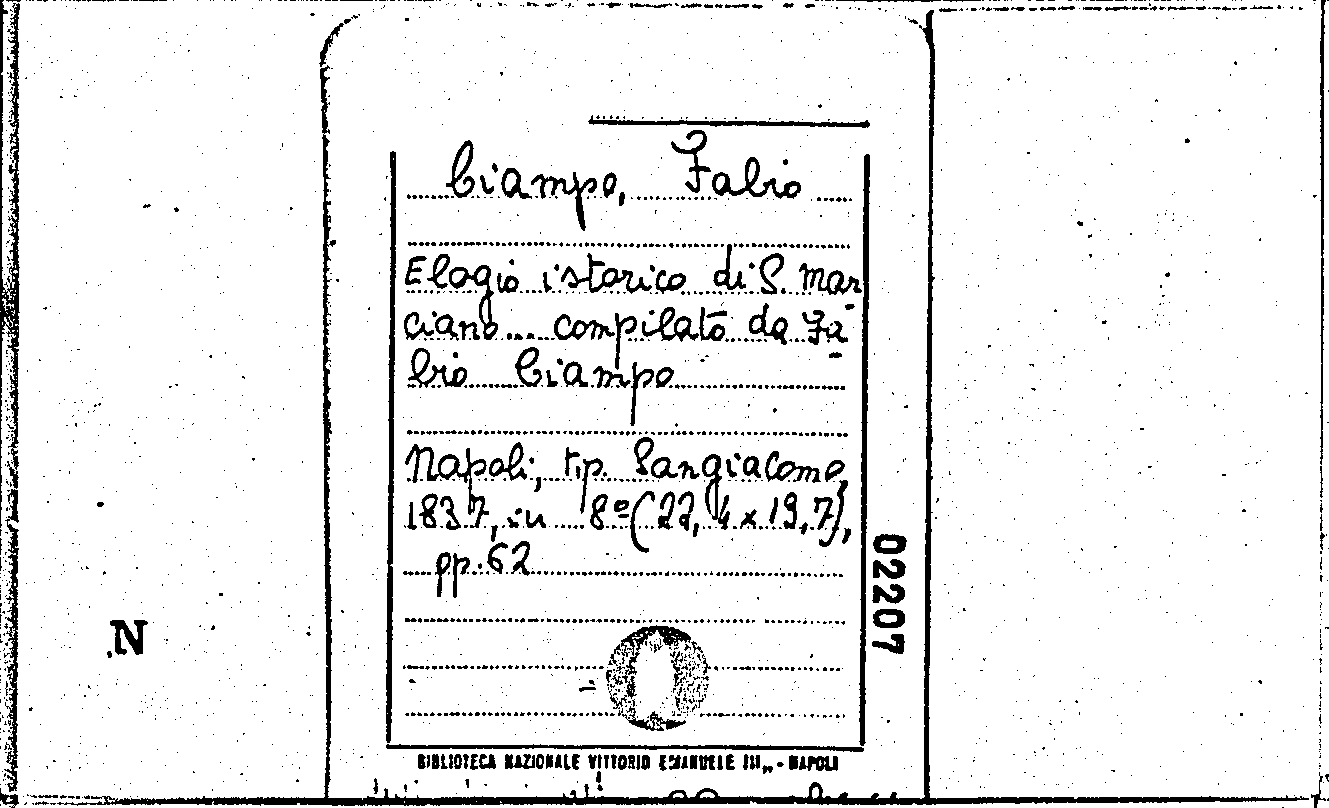 Ciampo, Fabio
Elogio istorico di S. Mar
ciano... compilato da Fa
bio Ciampo
Napoli, tip. Sangiacomo,
1837, in 8º (22,4 x 19,7),
pp. 62
02207
N
BIBLIOTECA NAZIONALE VITTORIO EMANUELE III„ - NAPOLI